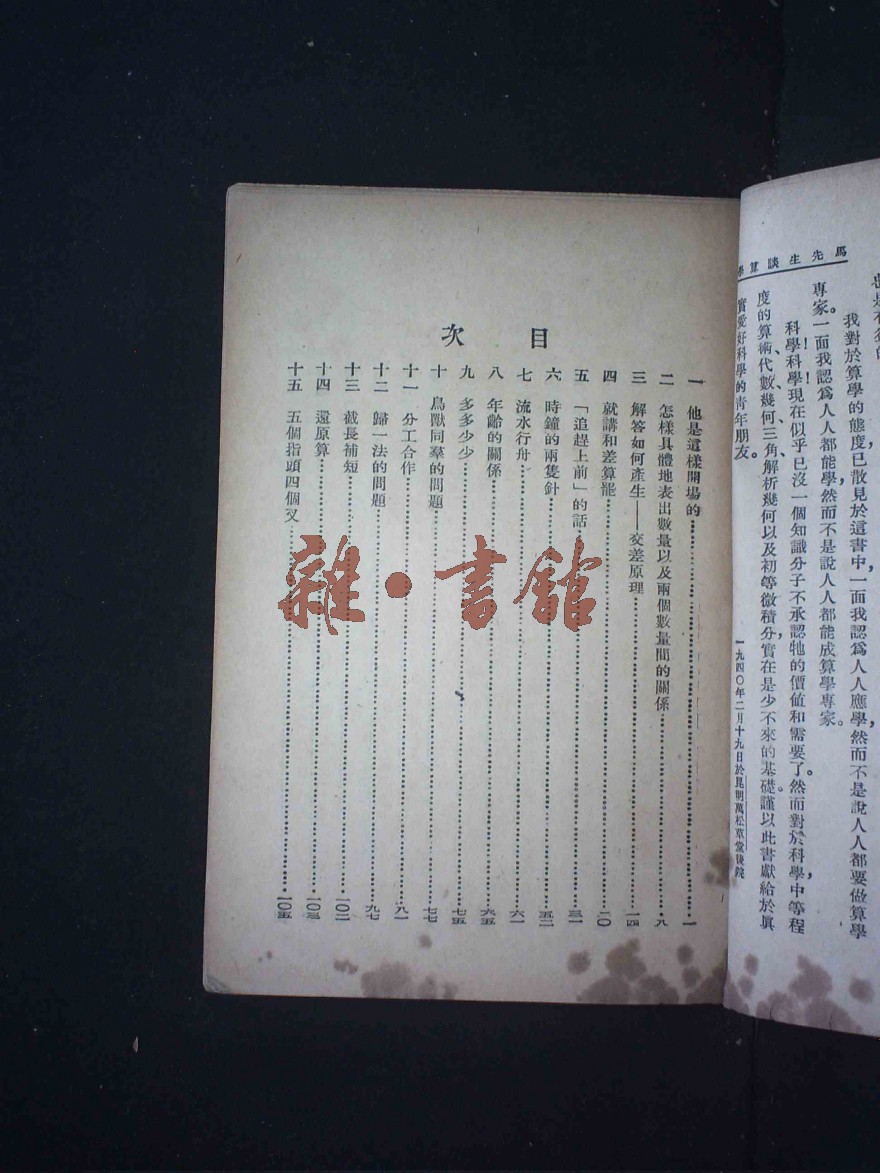 馬先生談算學
也是有益的
我對於算學的態度,已散見於這書中,一面我認爲人人應學,然而不是說人人都要做算學
專家。一面我認爲人人都能學,然而不是說人人都能成算學專家。
科學!科學!現在似乎已沒一個知識分子不承認牠的價値和需要了。然而對於科學中等程
度的算術、代數、幾何、三角、解析幾何以及初等微積分,實在是少不來的基礎。謹以此書獻給於眞
實愛好科學的靑年朋友。
一九四〇年二月十九日於昆明萬松草堂後院
目次
一 他是這樣開場的……一
二 怎樣具體地表出數量以及兩個數量間的關係……八
三 解答如何產生——交差原理……一四
四 就講和差算罷……二〇
五 「追趕上前」的話……三一
六 時鐘的兩隻針……五二
七 流水行舟……六一
八 年齡的關係……六五
九 多多少少……七五
十 鳥獸同羣的問題……七七
十一 分工合作……八一
十二 歸一法的問題……九七
十三 截長補短……一〇二
十四 還原算……一〇三
十五 五個指頭四個叉……一〇五
雜·書館